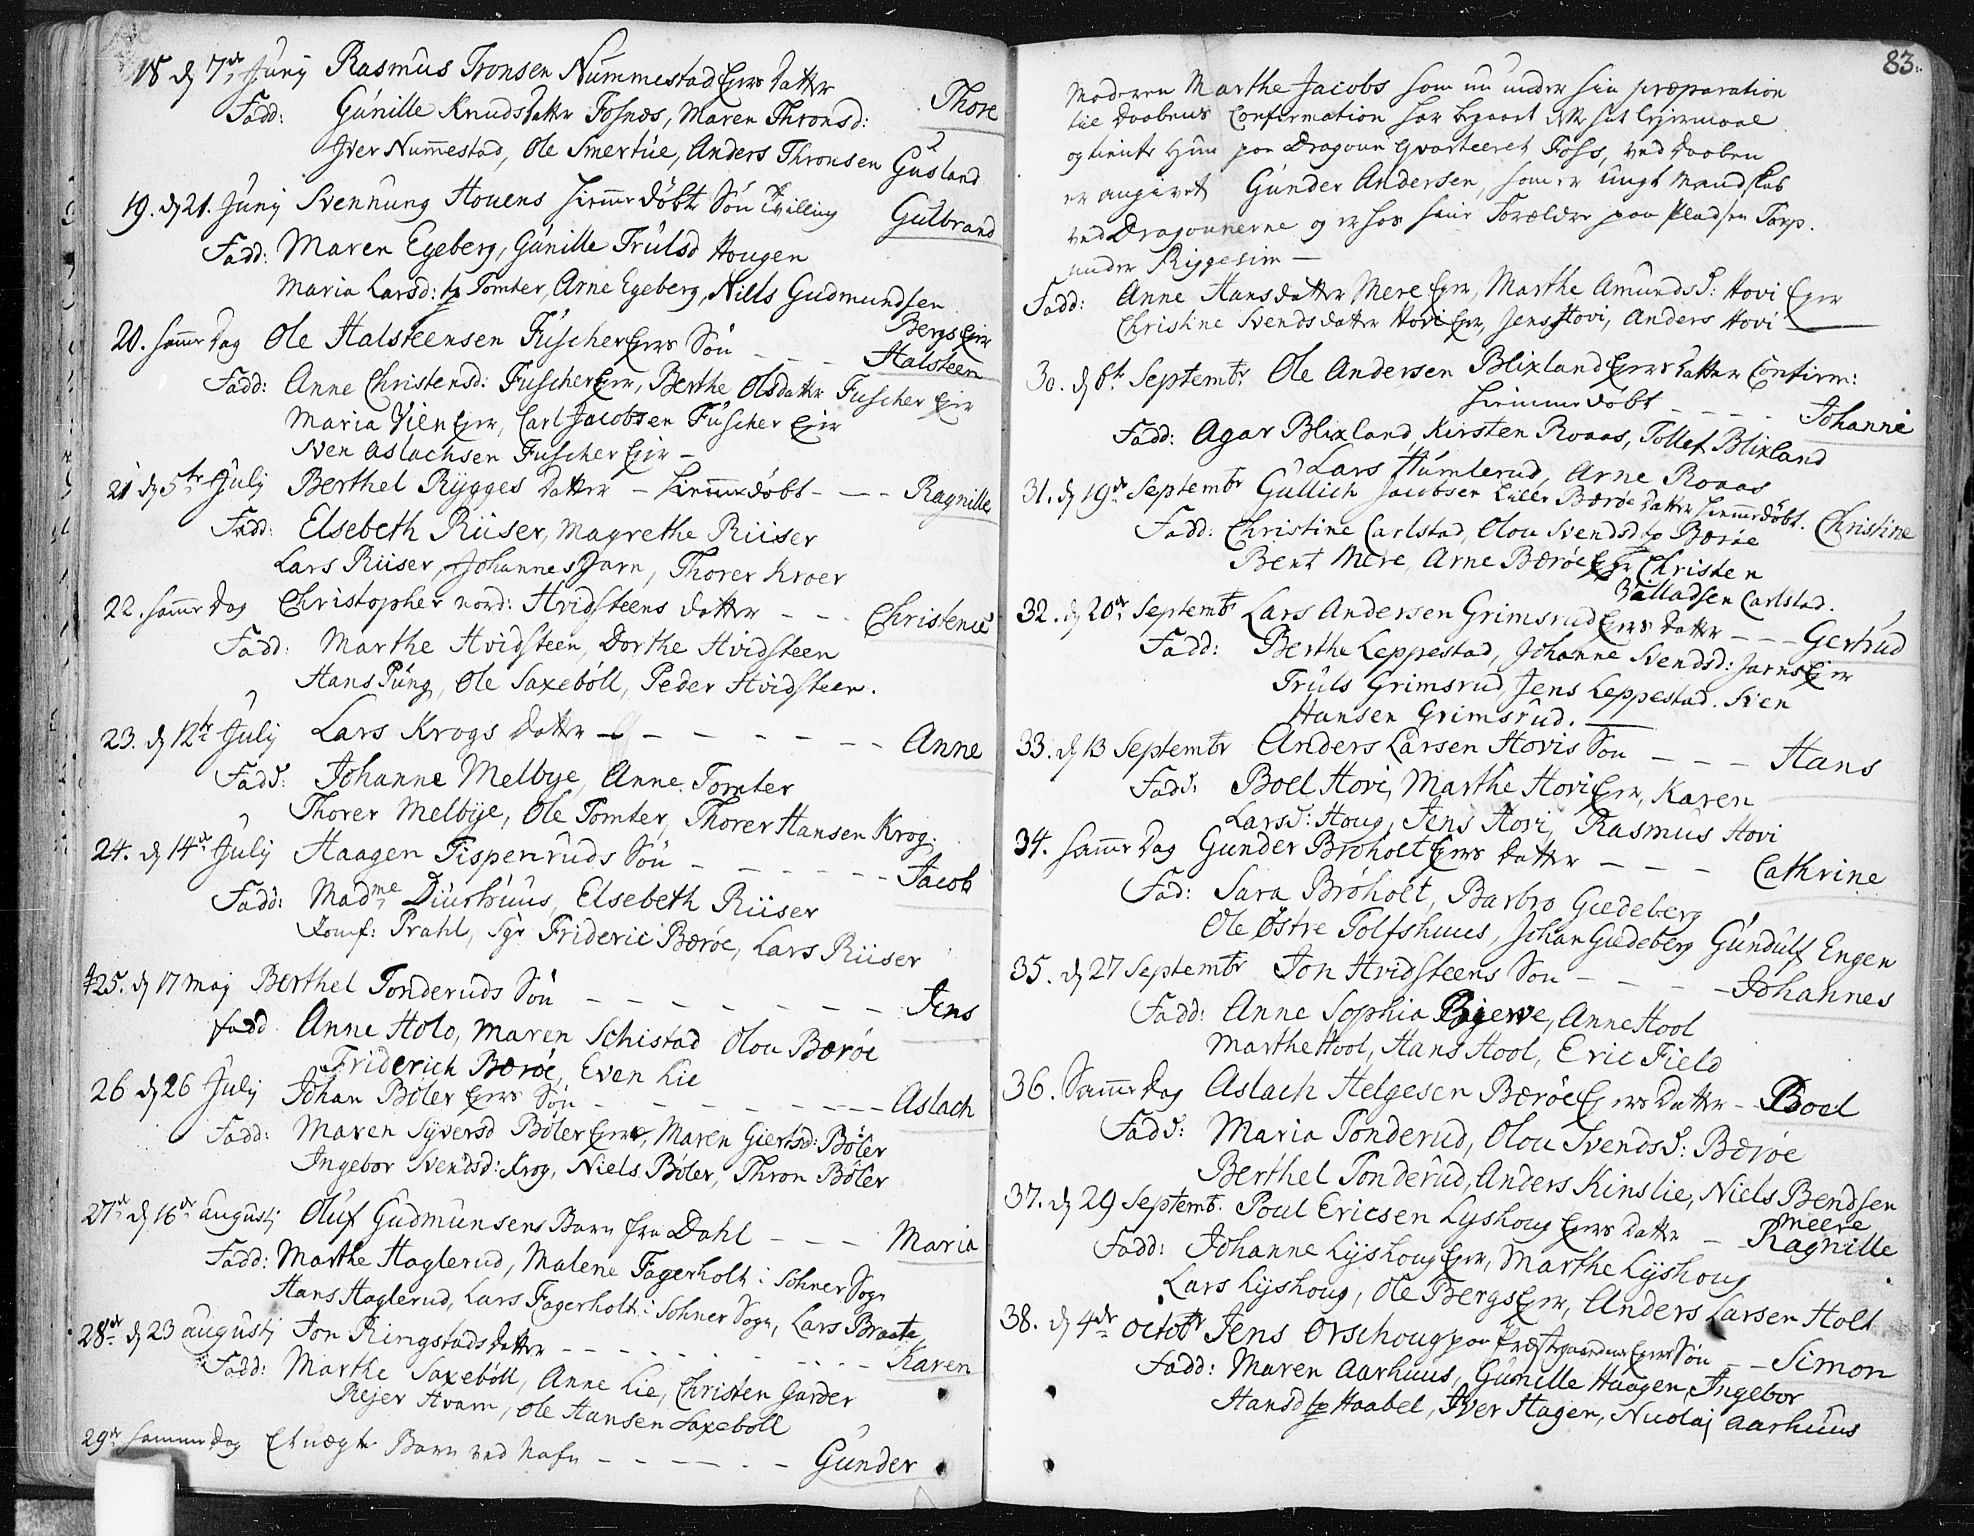 18 d 7de Junij Rasmus Tronsen Nummestad Eiers datter
Thore
Fadd: Gunille Knudsdatter Fosnæs, Maren Thronsd:
Iver Nummestad, Ole Smertue, Anders Thronsen Gusland
19. d 21. Junij Svennung Houens hiemmedøbt Søn Tvilling
Gulbrand
Fadd: Maren Egeberg, Gunille Trulsd Hougen
Maria Larsd: Tomter, Arne Egeberg, Nills Gudmundsen
Bergs Eier
20. samme Dag Ole Halsteensen Fuscher Eiers Søn - - - Halsteen
Fadd: Anne Christensd: Fuscher Eier, Berthe Olsdatter Fuscher Eier
Maria Vien Eier, Carl Jacobsen Fuscher Eier
Sven Aslachsen Fuscher Eier -
21 d 5te Julij Berthel Rygges datter - hiemmedøbt - - - Ragnille
Fadd: Elsebeth Riiser, Magrethe Riiser
Lars Riiser, Johannes Garn, Thorer Kroer
22. samme Dag Christopher nord: Hvidsteens datter - - - Christence
Fadd: Marthe Hvidsteen, Dorthe Hvidsteen
Hans Pung, Ole Saxebøll, Peder Hvidsteen.
23. d 12te Julij Lars Krogs datter - - - - - - - Anne
Fadd: Johanne Melbye, Anne Tomter
Thorer Melbye, Ole Tomter, Thorer Hansen Krog.
24. d 14de Julij Haagen Tispenruds Søn - - - - - - Jacob
Fadd: Madme Diurhuus, Elsebeth Riiser
Jomf: Prahl, Sgr Frideric Bærøe, Lars Riiser
25. d 17 Maj Berthel Tonderuds Søn - - - - - - - Jens
Fadd Anne Holo, Maren Schistad Olou Bærøe
Friderich Bærøe, Even Lie
26 d 26 Julij Johan Bøler Eiers Søn - - - - - - - Aslach
Fadd: Maren Syversd Bøler Eier, Maren Giertsd: Bøler
Ingebor Svendsd: Krog, Niels Bøler, Thron Bøler
27de d 16de augustj Oluf Gudmunsens Barn fra Dahl - - - Maria
Fadd: Marthe Haglerud, Malene Fagerholt i Sohner Sogn
Hans Haglerud, Lars Fagerholt i Sohner Sogn, Lars Braate
28de d 23 augustj Jon Ringstads datter - - - - - - - Karen
Fadd: Marthe Saxebøll, Anne Lie, Christen Garder
Rejer Hvam, Ole Hansen Saxebøll
29de samme dag Et uægte Barn ved Nafn - - - - - - Gunder
83.
Moderen Marthe Jacobs som nu under sin præparation
til Daabens Confirmation har begaaet dette sit Leiermaal
og tiente hun paa Dragoun Qvarteeret Foss, ved Daaben
er angivet Gunder Andersen, som er ungt Mandskab
ved Dragounerne og er hos sine Forældre paa Pladsen Tarp.
under Riggesim -
Fadd: Anne Hansdatter Mere Eier, Marthe Amundsd: Hovi Eier
Christine Svendsdatter Hovi Eier, Jens Hovi, Anders Hovi
30. d 6te Septembr Ole Andersen Blixland Eiers datter Confirm:
hiemmedøbt - - - - Johanne
Fadd: Agar Blixland, Kirsten Roaas, Tollef Blixland
Lars Humlerud, Arne Roaas
31. d 19de Septembr Gullich Jacobsen Lille Bærøe datter hiemmedøbt. Christine
Fadd: Christine Carlstad, Olou Svendsd Bærøe
Bent Mere, Arne Bærøe Eier Christen
Carlstad.
32. d 20de Septembr Lars Andersen Grimsrud Eiers datter - - - Gertrud
Fadd: Berthe Leppestad, Johanne Svendsd: Jarns Eier
Truls Grimsrud, Jens Leppestad. Sven
Hansen Grimsrud.
33. d 13 Septembr Anders Larsen Hovis Søn - - - Hans
Fadd: Boel Hovi, Marthe Hovi Eier, Karen
Larsd: Houg, Jens Hovi, Rasmus Hovi
34. samme Dag Gunder Brøholt Eiers datter - - - Cathrine
Fad: Sara Brøholt, Barbro Giedeberg
Ole Østre Tolfshuus, Johan Giedeberg Gundulf Engen
35. d 27 Septembr Jon Hvidsteens Søn - - - - Johannes
Fadd: Anne Sophia Bierve, Anne Hool
Marthe Hool, Hans Hool, Eric Field
36. Samme Dag Aslach Helgesen Bærøe Eiers datter - Boel
Fadd: Maria Tonderud, Olou Svendsd: Bærøe
Berthel Tonderud, Anders Kinslie, Niels Bendsen
Meere
37. d 29 Septemb. Poul Ericsen Lyshoug Eiers datter - - Ragnille
Fadd: Johanne Lyshoug Eier, Marthe Lyshoug
Lars Lyshoug, Ole Bergs Eier, Anders Larsen Holt
38. d 4de Octobr Jens Orschoug paa Præstegaardens Eier Søn - - Simon
Fadd: Maren Aarhuus, Gunille Haagen, Ingebor
Hansd Haabel, Iver Hagen, Nicolaj Aarhuus